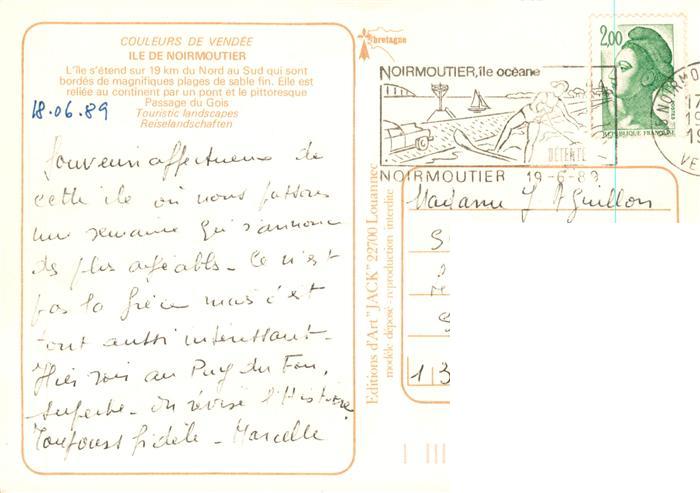 COULEURS DE VENDÉE
ILE DE NOIRMOUTIER
L'île s'étend sur 19 km du Nord au Sud qui sont
bordés de magnifiques plages de sable fin. Elle est
reliée au continent par un pont et le pittoresque
Passage du Gois
Touristic landscapes
Reiselandschaften
18.06.89
Souvenirs affectueux de
cette île où nous passons
une semaine qui s'annonce
des plus agréables. Ce n'est
pas la Grèce mais c'est
tout aussi intéressant.
Hier soir au Puy du Fou,
superbe. On révise l'Histoire
Toujours fidèle. Marcelle
Editions d'Art "JACK" 22700 Louannec
modèle déposé - reproduction interdite
bretagne
NOIRMOUTIER, île océane
DÉTENTE
NOIRMOUTIER 19-6-89
2,00
REPUBLIQUE FRANÇAISE
NOIRMO
17
19
VE
Madame J Guillon
13